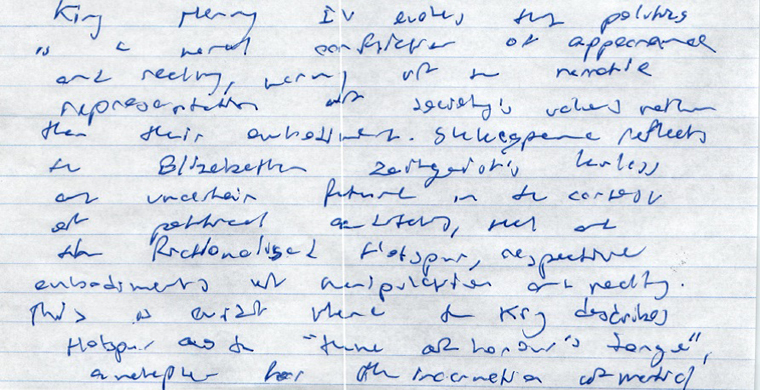 King Henry IV evokes that politics
is a moral confliction of appearance
and reality, of the
representation of society's values rather
than their embodiment. Shakespeare reflects
the Elizabethan zeitgeist's
an uncertain future in the context
of political and
the fictionalised Hotspur, respective
embodiments of manipulation and reality.
This is evident where the King describes
Hotspur as the "theme of honour's tongue",
a metaphor for the incarnation of